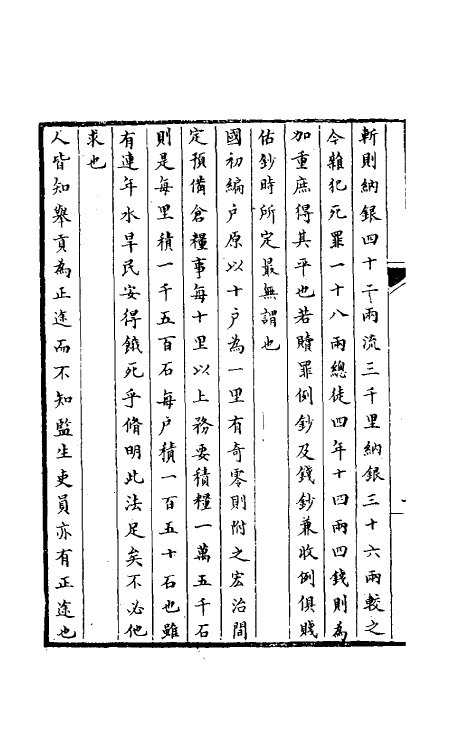 斬則納銀四十二兩流三千里納銀三十六兩較之
今雜犯死罪一十八兩總徒四年十四兩四錢則為
加重庶得其平也若贖罪例鈔及錢鈔兼收例俱賤
估鈔時所定最無謂也
國初編戶原以十戶為一里有奇零則附之宏治間
定預備倉糧事每十里以上務要積糧一萬五千石
則是每里積一千五百石每戶積一百五十石也雖
有連年水旱民安得餓死乎脩明此法足矣不必他
求也
人皆知舉貢為正途而不知監生吏員亦有正途也